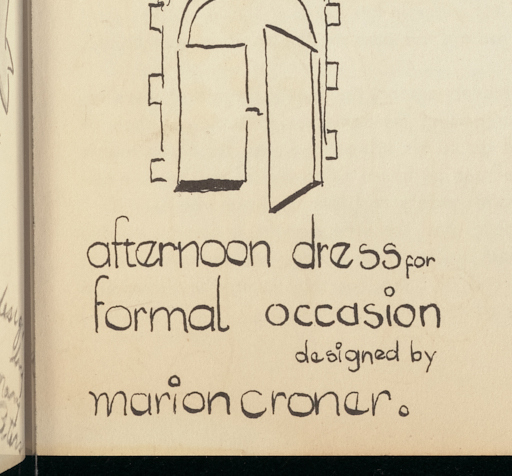 afternoon dress for
formal occasion
designed by
marion croner.